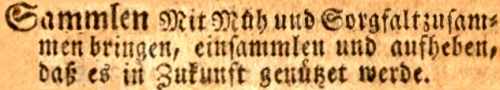 Sammlen Mit Müh und Sorgfalt zusam⸗
men bringen, einsammlen und aufheben,
daß es in Zukunft genützet werde.